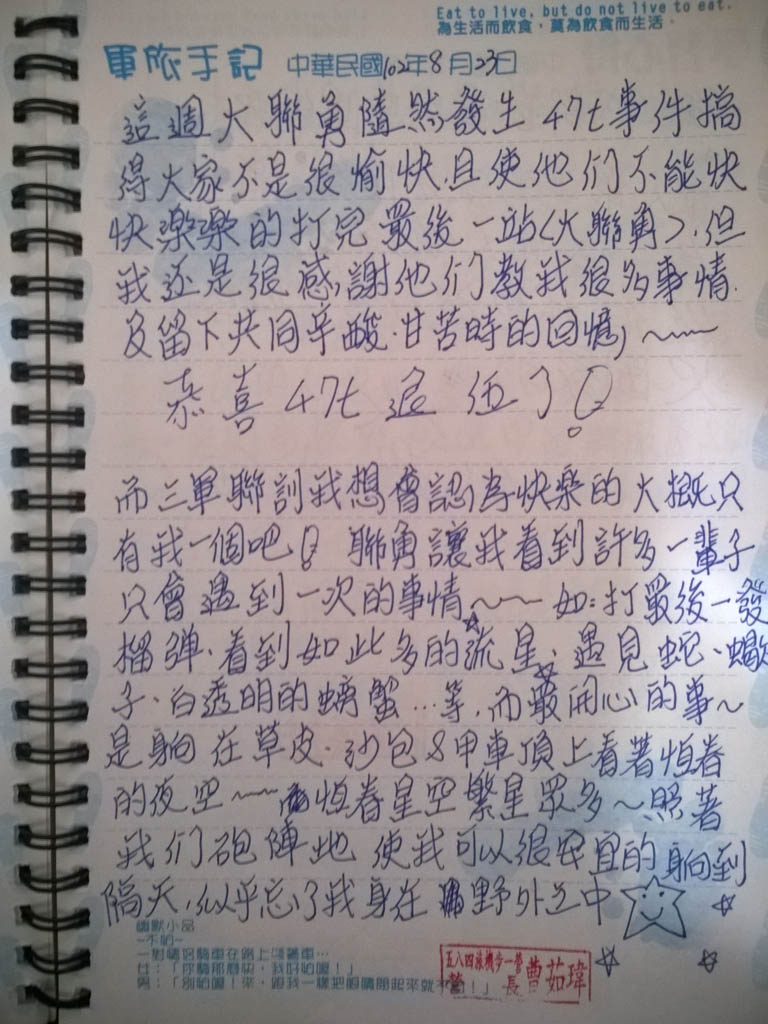 Eat to live, but do not live to eat.
為生活而飲食，莫為飲食而生活。
軍旅手記 中華民國102年8月23日
這週大聯勇隨然發生47t事件搞
得大家不是很愉快,且使他们不能快
快樂樂的打完最後一站<大聯勇>,但
我还是很感謝他们教我很多事情.
及留下共同辛酸.甘苦時的回憶,~~~
恭喜47t退伍了!
而三軍聯訓我想會認為快樂的大概只
有我一個吧! 聯勇讓我看到許多一輩子
只會遇到一次的事情~~~ 如:打最後一發
榴弹、看到如此多的流星、遇見蛇、蠍
子、白透明的螃蟹...等,而最開心的事~
是躺在草皮、沙包&甲車頂上看著恒春
的夜空~~~ 恒春星空繁星眾多~照著
我们砲陣地 使我可以很安宜的躺到
隔天,似乎忘了我身在野外之中
幽默小品
~不怕~
一對情侶騎車在路上飆車…
女：「你騎那麼快，我好怕喔！」
男：「別怕喔！來，跟我一樣把眼睛閉起來就不怕！」
五八四旅機步一營
營長 曹茹瑋